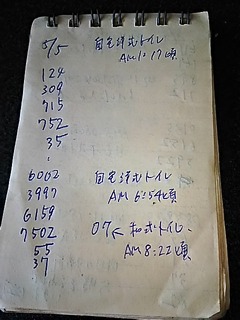 5/5 自宅洋式トイレ
AM 1:17頃
124
309
715
752
35
:
6002 自宅洋式トイレ
3997 AM 6:54頃
6159
7502 07← 和式トイレ
55 AM 8:22頃
37
: